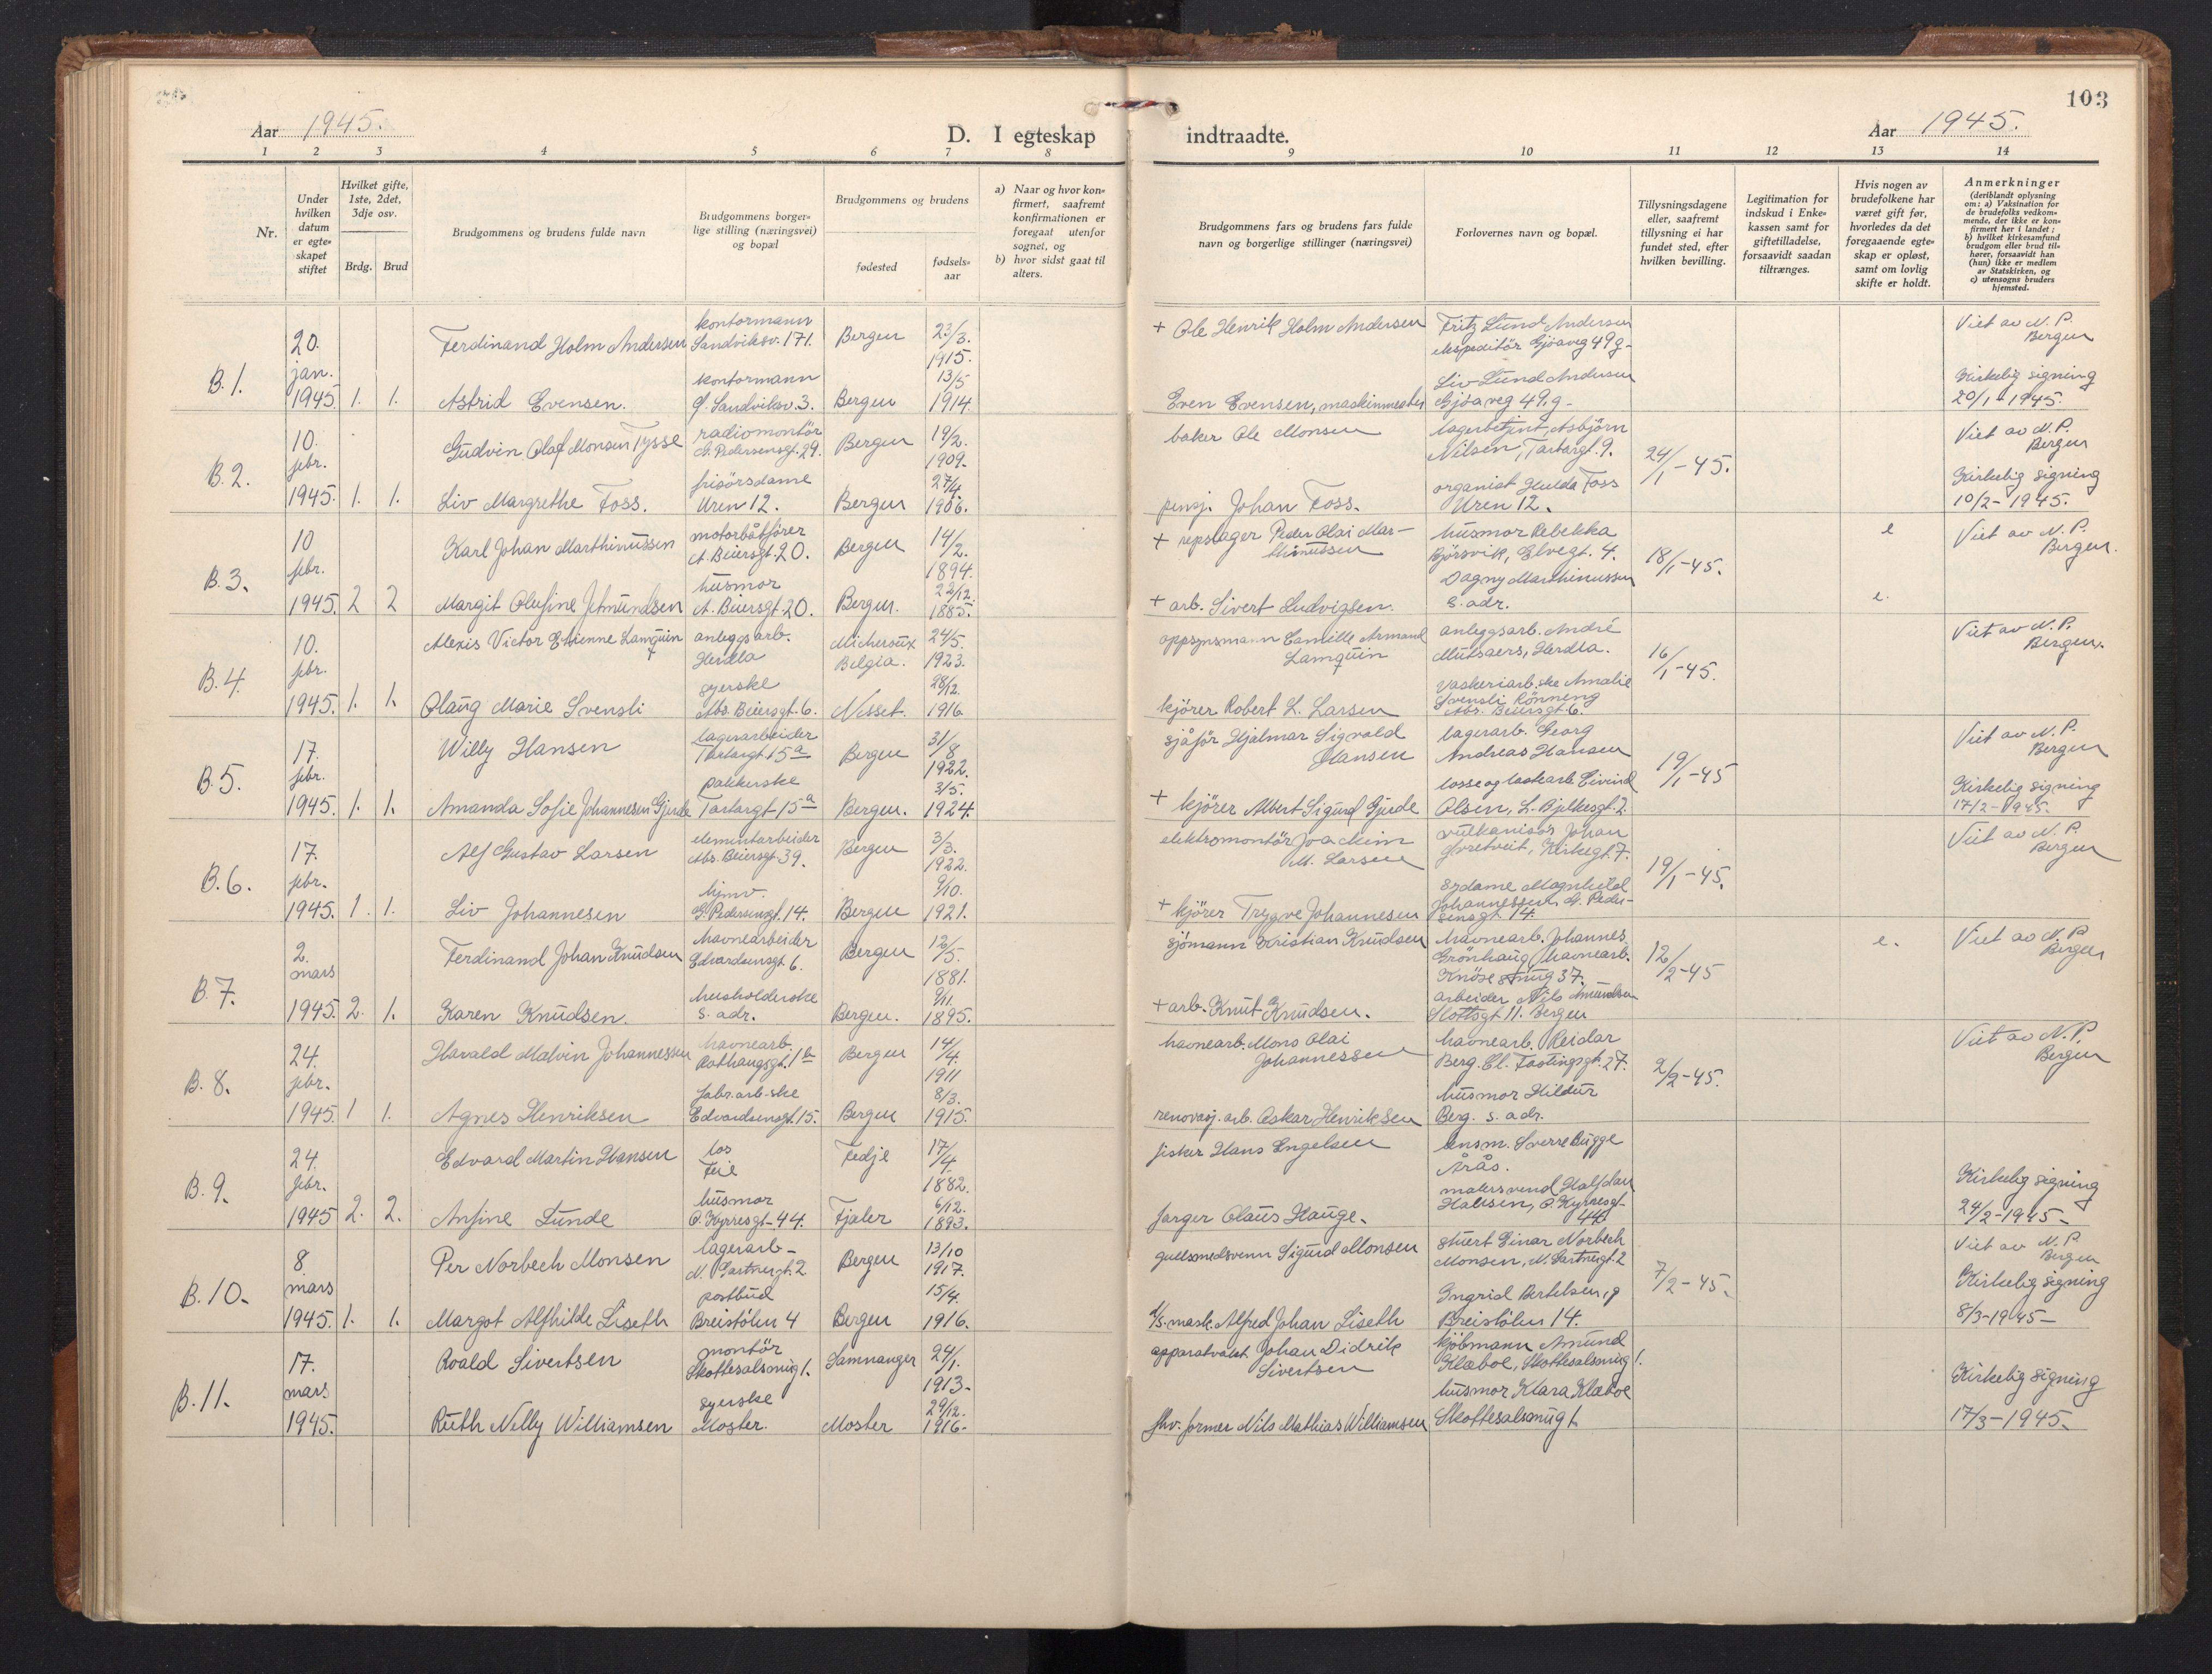 103
Aar 1945.
D. I egteskap indtraadte.
Aar 1945.
1 2 3 4 5 6 7 8 9 10 11 12 13 14
Nr.
Under hvilken datum er egteskapet stiftet
Hvilket gifte, 1ste, 2det, 3dje osv.
Brdg. Brud
Brudgommens og brudens fulde navn
Brudgommens borgerlige stilling (næringsvei) og bopæl
Brudgommens og brudens
fødested
fødselsaar
a) Naar og hvor konfirmert, saafremt konfirmationen er foregaat utenfor sognet, og
b) hvor sidst gaat til alters.
Brudgommens fars og brudens fars fulde navn og borgerlige stillinger (næringsvei)
Forlovernes navn og bopæl.
Tillysningsdagene eller, saafremt tillysning ei har fundet sted, efter hvilken bevilling.
Legitimation for indskud i Enkekassen samt for giftetilladelse, forsaavidt saadan tiltrænges.
Hvis nogen av brudefolkene har været gift før, hvorledes da det foregaaende egteskap er opløst, samt om lovlig skifte er holdt.
Anmerkninger
(deriblandt oplysning om: a) Vaksination for de brudefolks vedkommende, der ikke er konfirmert her i landet; b) hvilket kirkesamfund brudgom eller brud tilhører, forsaavidt han (hun) ikke er medlem av Statskirken, og c) utensogns bruders hjemsted.
B. 1.
20. jan. 1945. 1. 1.
Ferdinand Holm Andersen
kontormann Sandviksv. 171.
Bergen
23/3. 1915.
+ Ole Henrik Holm Andersen
Fritz Lund Andersen
ekspeditör Gjöaveg 49 g-
Viet av N. P. Bergen
Astrid Evensen.
kontormann
Ø. Sandviksv. 3.
Bergen
13/5 1914
Even Evensen, maskinmester
Liv Lund Andersen
Gjöaveg 49.g-
Kirkelig signing
20/1-1945.
B. 2.
10. febr. 1945. 1. 1.
Gudvin Olaf Monsen Tysse
radiomontör
G. Pedersensgt. 29.
Bergen
19/2. 1909.
baker Ole Monsen
lagerbetjent, Asbjörn
Nilsen, Tartargt. 9.
24/1-45.
Viet av N. P. Bergen
Liv Margrethe Foss.
frisörsdame
Uren 12.
Bergen
27/4. 1906.
pensj. Johan Foss.
organist Hulda Foss
Uren 12.
Kirkelig signing
10/2-1945.
B. 3.
10 febr. 1945. 2 2
Karl Johan Marthinussen
motorbåtförer
A. Beiersgt. 20.
Bergen
14/2. 1894.
+ repslager Peder Olai Marthinussen
husmor Rebekka
Björsvik, Elvegt. 4.
18/1-45.
e
Viet av N. P. Bergen.
Margit Olufine Amundsen
husmor
A. Beiersgt 20.
Bergen.
22/12. 1885.
+ arb. Sivert Ludvigsen.
Dagny Marthinussen
s. adr.
e.
B. 4.
10. febr. 1945. 1. 1.
Alexis Victor Etienne Lamquin
anleggsarb.
Herdla
Micheroux
Belgia.
24/5. 1923.
oppsynsmann Camille Armand Lamquin
anleggsarb. André
Mutsaers, Herdla.
16/1-45.
Viet av N. P. Bergen.
Olaug Marie Svensli
syerske
Abs. Beiersgt. 6.
Nesset.
28/12. 1916
kjörer Robert L. Larsen
vaskeriarb.ske Amalie
Svensli Rönneng
Abs. Beiersgt 6.
B. 5.
17. febr. 1945. 1. 1.
Willy Hansen
lagerarbeider
Tartargt 15a
Bergen
31/8 1922.
sjåför Hjalmar Sigvald Hansen
lagerarb. Georg
Andreas Hansen
19/1-45
Viet av N. P. Bergen
Amanda Sofie Johannesen Gjerde
pakkerske
Tartargt 15a
Bergen.
3/5. 1924.
+ kjörer Albert Sigurd Gjerde
losse og lastearb. Eivind
Olsen, L. Bjelkesgt. 2.
Kirkelig signing
17/2-1945.
B. 6.
17. febr. 1945. 1. 1.
Alf Gustav Larsen
elementarbeider
Abs. Beiersgt 39.
Bergen
3/3. 1922.
elektromontör Joachim M. Larsen
vulkanisör Johan
Tvetveit, Kirkegt. 7.
19/1-45.
Viet av N. P. Bergen
Liv Johannesen
hjmv.
G. Pedersensgt. 14.
Bergen
9/10. 1921.
+ kjörer Trygve Johannesen
sydame Magnhild
Johannessen G. Pedersensgt 14.
B. 7.
2. mars 1945. 2. 1.
Ferdinand Johan Knudsen
havnearbeider
Edvardsensgt 6.
Bergen
12/5. 1881.
sjömann Kristian Knudsen
havnearb. Johannes
Grönhaug, havnearb.
Knösesmug 37.
12/2-45
e.
Viet av N. P. Bergen
Karen Knudsen.
husholderske
s. adr.
Bergen.
9/11. 1895.
+ arb. Knut Knudsen.
arbeider Nils Amundsen
Slottsgt 11. Bergen
B. 8.
24. febr. 1945 1 1.
Harald Malvin Johannessen
havnearb.
Rothaugsgt. 1b
Bergen
14/4. 1911
havnearb. Mons Olai Johannessen
havnearb. Reidar
Berg. Cl. Fastingsgt. 27.
2/2-45.
Viet av N. P. Bergen
Agnes Henriksen
fabr.arb-ske
Edvardsensgt. 15.
Bergen
8/3. 1915.
renovasj. arb. Oskar Henriksen
husmor Hildur
Berg. s. adr.
B. 9.
24. febr. 1945 2. 2.
Edvard Martin Hansen
los
Feie
Fedje
17/4. 1882.
fisker Hans Engelsen
lensm. Sverre Bugge
Årås.
Ansine Lunde
husmor
O. Kyrresgt-44.
Fjaler
6/12. 1893.
farger Olaus Hauge.
malersvend Halfdan
Halsen, O. Kyrresgt-44
Kirkelig signing
24/2-1945-
B. 10.
8 mars 1945. 1. 1.
Per Norbech Monsen
lagerarb-
N. Gartnergt. 2
Bergen
13/10 1917.
gullsmedsvenn Sigurd Monsen
stuert Einar Norbech
Monsen, N. Gartnergt. 2
7/2-45.
Viet av N. P. Bergen
Margot Alfhilde Liseth
postbud
Breistölen 4
Bergen
15/4. 1916.
mask. Alfred Johan Liseth
Ingrid Bertelsen,
Breistölen 14.
Kirkelig signing
8/3-1945-
B. 11.
17. mars 1945.
Roald Sivertsen
montör
Skottesalsmug 1.
Samnanger
24/1. 1913-
apparatvakt Johan Didrik Sivertsen
kjöbmann Amund
Klæboe, Skottesalsmug 1.
Ruth Nelly Williamsen
syerske
Moster.
Moster
29/12. 1916-
fhv. former Nils Mathias Williamsen
husmor Klara Klæboe
Skottesalsmug 1.
Kirkelig signing
17/3-1945.